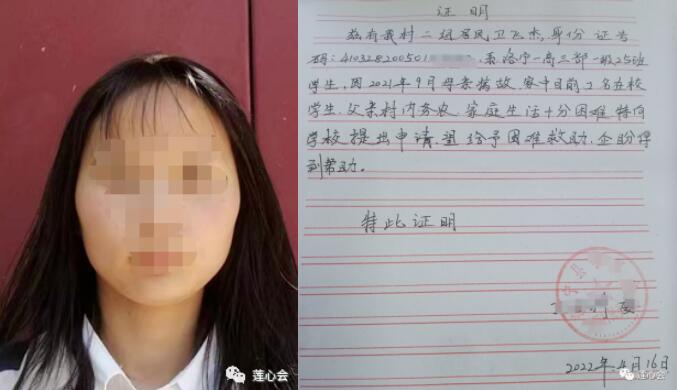 证明
兹有我村二组居民卫飞杰,身份证号
码:410328200501 系洛宁一高三部一级25班
学生,因2021年9月母亲病故,家中目前2名在校
学生,父亲村内务农,家庭生活十分困难,特向
学校提出申请,望给予困难救助,企盼得
到帮助。
特此证明
2022.4月16日
莲心会
莲心会